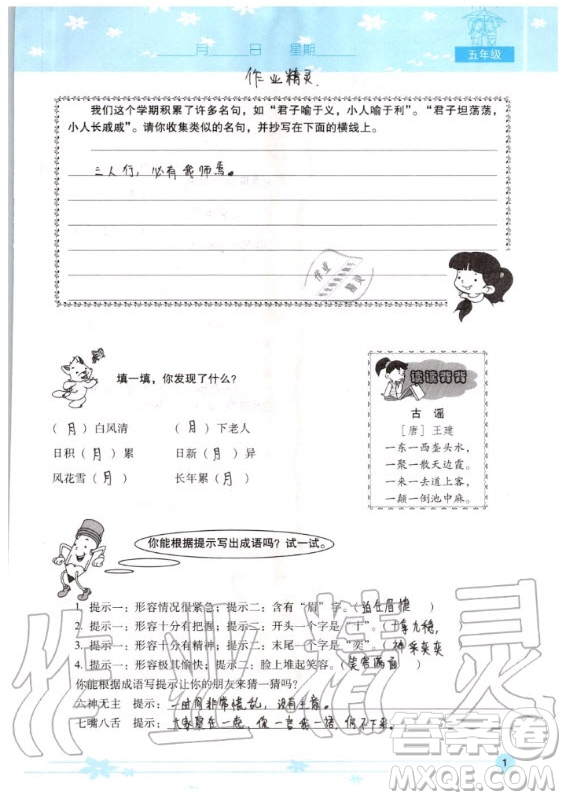 月 日 星期
五年级
作业精灵
我们这个学期积累了许多名句，如“君子喻于义，小人喻于利”。“君子坦荡荡，
小人长戚戚”。请你收集类似的名句，并抄写在下面的横线上。
三人行，必有我师焉。
作业
精灵
填一填，你发现了什么？
（月）白风清 （月）下老人
日积（月）累 日新（月）异
风花雪（月） 长年累（月）
读读背背
古谣
［唐］王建
一东一西垄头水，
一聚一散天边霞。
一来一去道上客，
一颠一倒池中麻。
你能根据提示写出成语吗？试一试。
1. 提示一：形容情况很紧急；提示二：含有“眉”字。（迫在眉睫）
2. 提示一：形容十分有把握；提示二：开头一个字是“十”。（十拿九稳）
3. 提示一：形容十分有精神；提示二：末尾一个字是“奕”。（神采奕奕）
4. 提示一：形容极其愉快；提示二：脸上堆起笑容。（笑容满面）
你能根据成语写提示让你的朋友来猜一猜吗？
六神无主 提示：一时间非常慌乱，没有主意。
七嘴八舌 提示：大家聚在一起，你一言我一语，停不下来。
作业精灵
答案圈
MXQE.COM
1